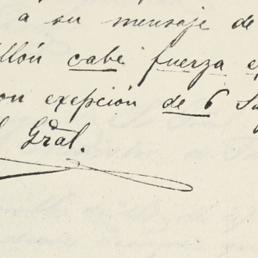 a su mensaje de
llón cabe fuerza e
on exepción de 6 Sa
l Gral.